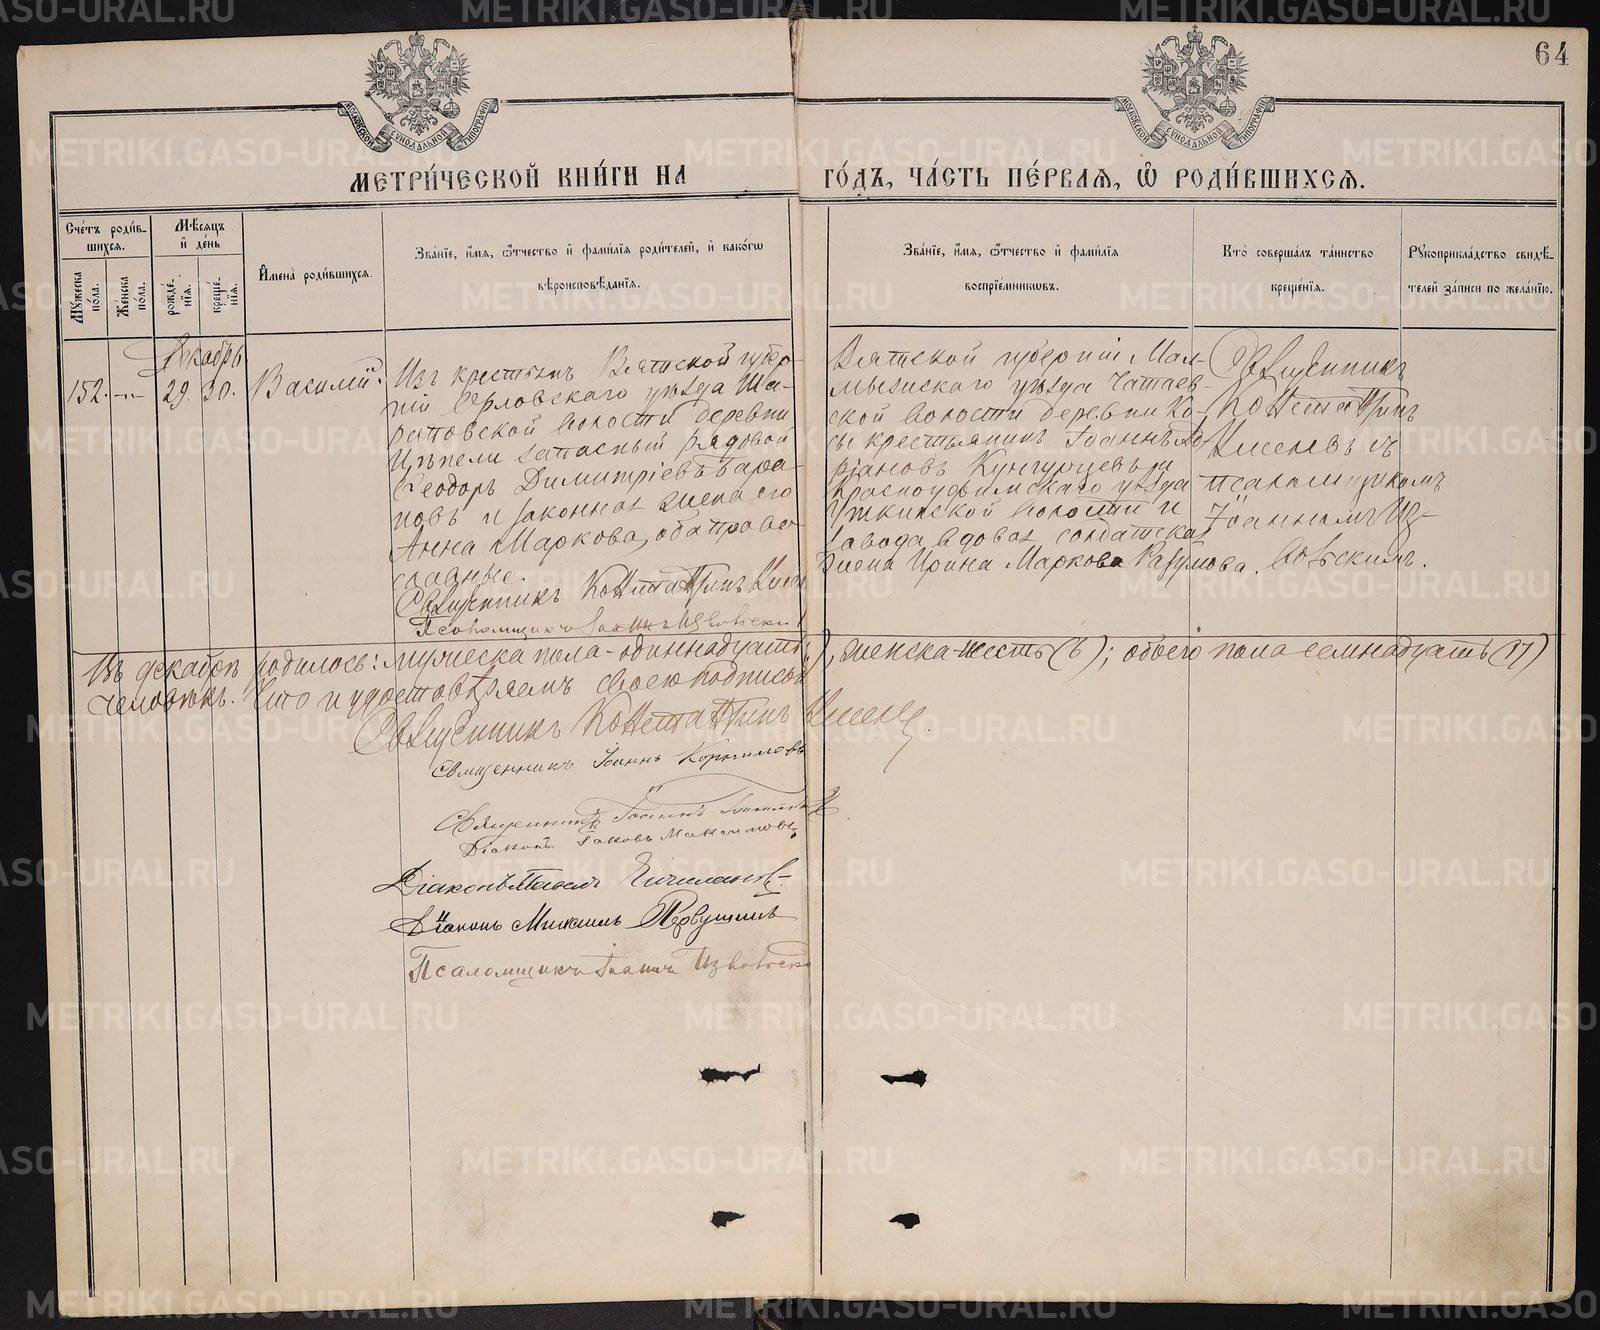 64
МОСКОВСКОЙ СѴНОДАЛЬНОЙ ТИПОГРАФІИ
МОСКОВСКОЙ СѴНОДАЛЬНОЙ ТИПОГРАФІИ
МЕТРИ́ЧЕСКОЙ КНИ́ГИ НА
ГО́ДЪ, ЧА́СТЬ ПЕ́РВАѦ, Ѡ҆ РОДИ́ВШИХСѦ.
Сче́тъ роди́в-
шихсѧ.
Мꙋ́жеска по́ла.
Же́нска по́ла.
Мѣ́сѧцъ
и҆ де́нь
рожде́-
нїѧ.
креще́-
нїѧ.
И҆мена̀ роди́вшихсѧ.
Зва́нїе, и҆́мѧ, ѻ҆́тчество и҆ фами́лїѧ роди́телей, и҆ како́гѡ
вѣроисповѣ́данїѧ.
Зва́нїе, и҆́мѧ, ѻ҆́тчество и҆ фами́лїѧ
воспрїе́мниковъ.
Кто̀ соверша́лъ та́инство
креще́нїѧ.
Рꙋкоприкла́дство свидѣ́-
телей за́писи по жела́нїю.
Декабрь
152. -"- 29. 30. Василій.
Изъ крестьянъ Вятской губер-
ніи Орловскаго уѣзда Ша-
раповской волости деревни
запасный рядовой
Ѳеодоръ Димитріевъ Бара-
новъ и законная жена его
Анна Маркова, оба право-
славные.
Священникъ Константинъ
Псаломщикъ Іоаннъ Изволвскій
Вятской губерніи Мал-
мыжскаго уѣзда
ской волости деревни Ко-
сы крестьянинъ Іоаннъ
ріановъ Кунгурцевъ и
Красноуфимскаго уѣзда
Уткинской волости и
завода вдовая солдатская
жена Ирина Маркова Разумова.
Священникъ
Константинъ
съ
псаломщикомъ
Іоанномъ Из-
вольскимъ.
Въ декабрѣ родилось: мужеска пола - одиннадцать, женска - шесть (6); обоего пола семнадцать (17)
человѣкъ. Что и удостовѣряемъ своею подписью
Священникъ Константинъ
Священникъ Іоаннъ Корниловъ
Священникъ Іоаннъ
Діаконъ Іаковъ Максимовъ
Діаконъ Павелъ
Діаконъ Михаилъ Первушинъ
Псаломщикъ Іоаннъ Извольскій
METRIKI.GASO-URAL.RU